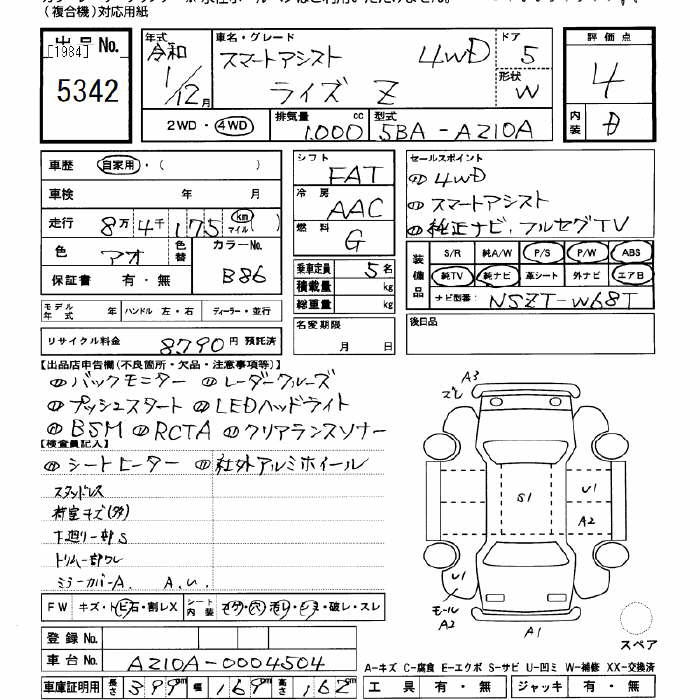 (複合機)対応用紙
出品 No.
[1984]
5342
年式
令和
1/12月
車名・グレード
スマートアシスト 4WD
ライズ Z
ドア
5
形状
W
評価点
4
内装
D
2WD・4WD
排気量
1.000 cc
型式
5BA-A210A
車歴 自家用・( )
車検 年 月
走行 8万4千175 km マイル( )
色 アオ 色替 カラーNo. B86
保証書 有・無
シフト FAT
冷房 AAC
燃料 G
乗車定員 5名
積載量 kg
総重量 kg
セールスポイント
① 4WD
① スマートアシスト
① 純正ナビ、フルセグTV
装備品
S/R 純A/W P/S P/W ABS
純TV 純ナビ 革シート 外ナビ エアB
ナビ型番: NSZT-W68T
モデル年式 年 ハンドル 左・右 ディーラー・並行
名変期限
月 日
後日品
リサイクル料金 8790 円 預託済
【出品店申告欄(不良箇所・欠品・注意事項等)】
① バックモニター ① レーダークルーズ
① プッシュスタート ① LEDヘッドライト
① BSM ① RCTA ① クリアランスソナー
【検査員記入】
① シートヒーター ① 社外アルミホイール
スタッドレス
荷室キズ(多)
下廻り一部S
トリム一部ワレ
ミラーカバーA. A.U.
FW キズ・トビ石・割レX
シート内装 コゲ・穴・汚レ・シミ・破レ・スレ
A3
ズレ
S1
U1
A2
U1
モール
A2
A1
スペア
登録 No.
車台 No. A210A-0004504
A-キズ C-腐食 E-エクボ S-サビ U-凹ミ W-補修 XX-交換済
車庫証明用 長さ 399cm 幅 169cm 高さ 162cm
工具 有・無 ジャッキ 有・無